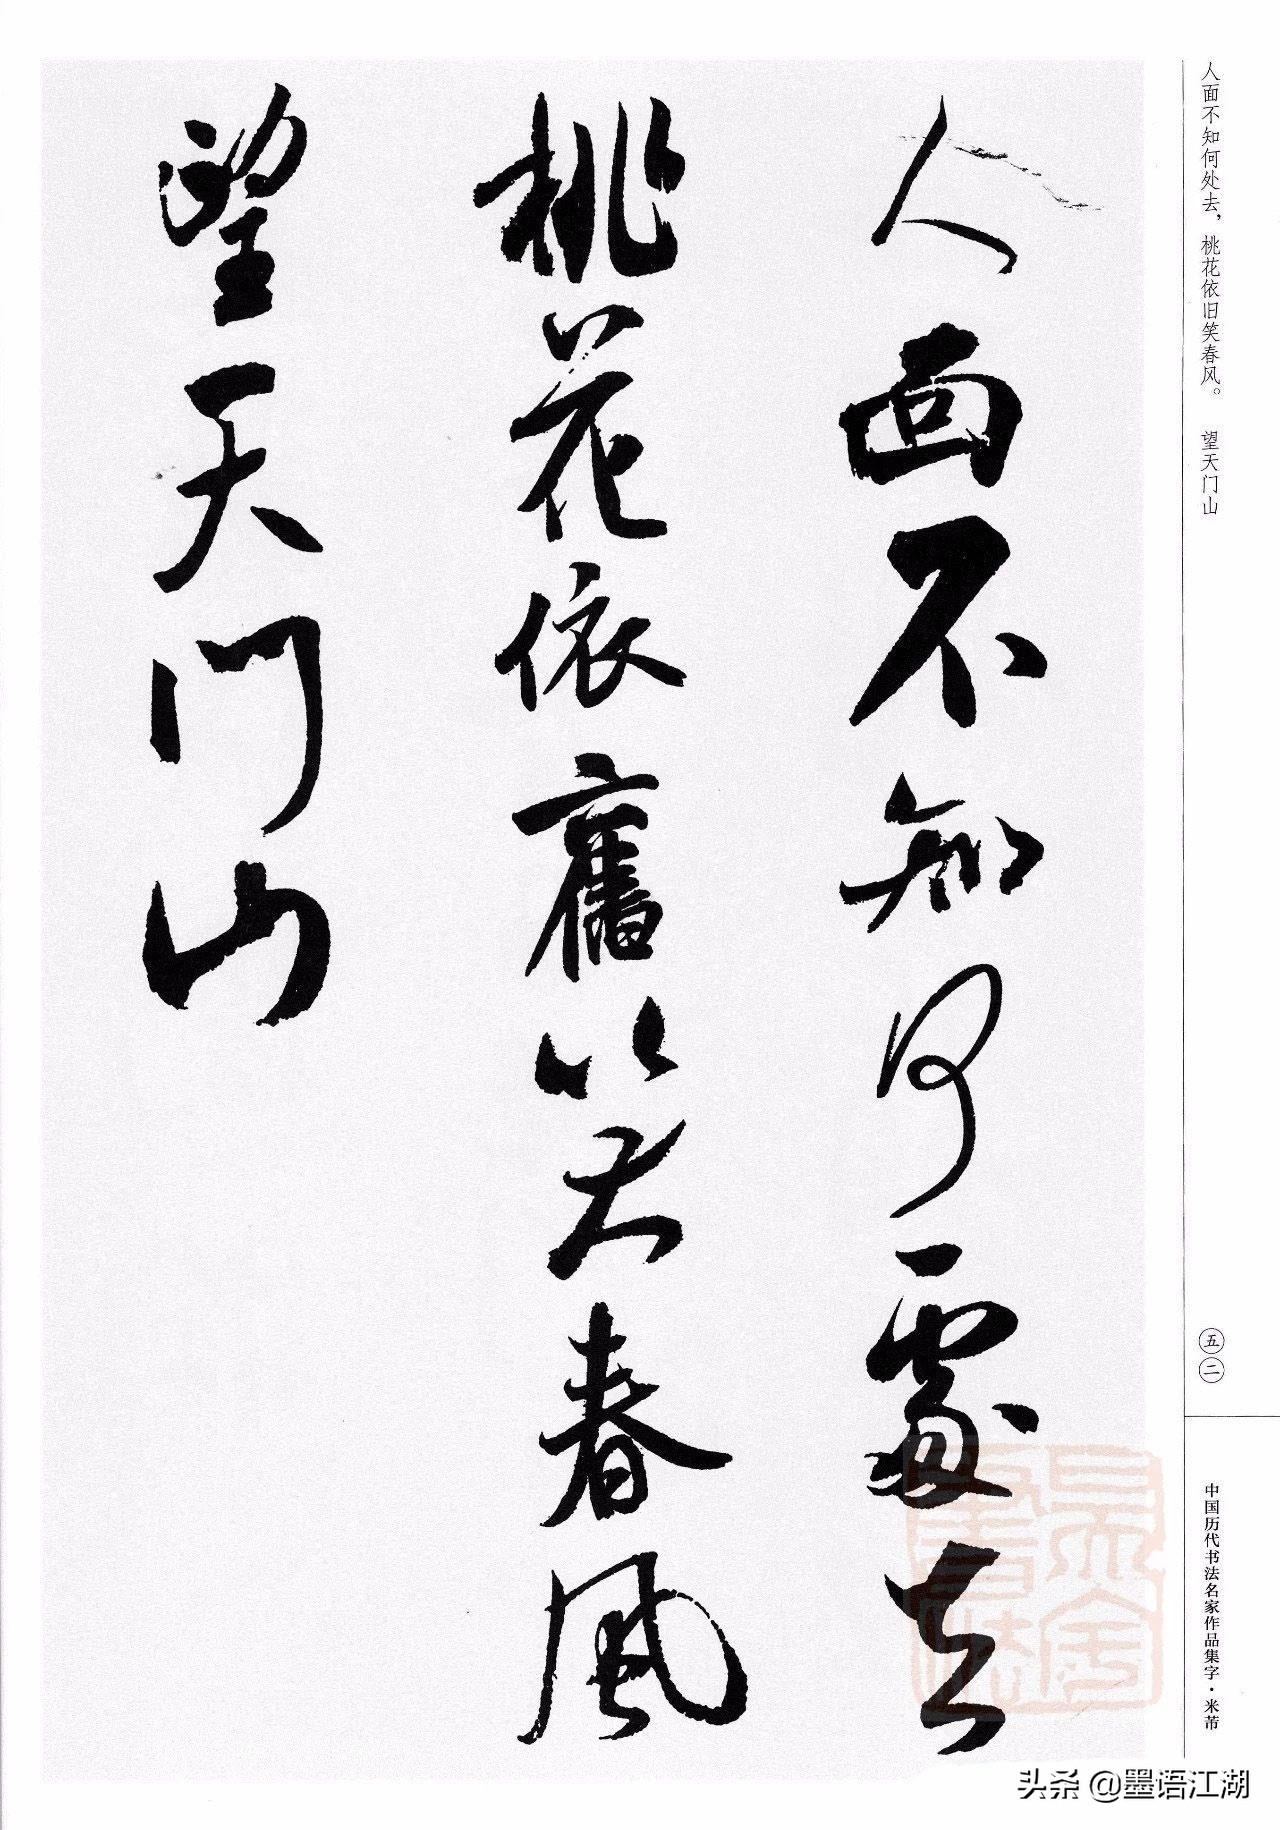 人面不知何處去
桃花依舊笑春風
望天門山
人面不知何处去，桃花依旧笑春风。 望天门山
五二
中国历代书法名家作品集字·米芾
头条 @墨语江湖